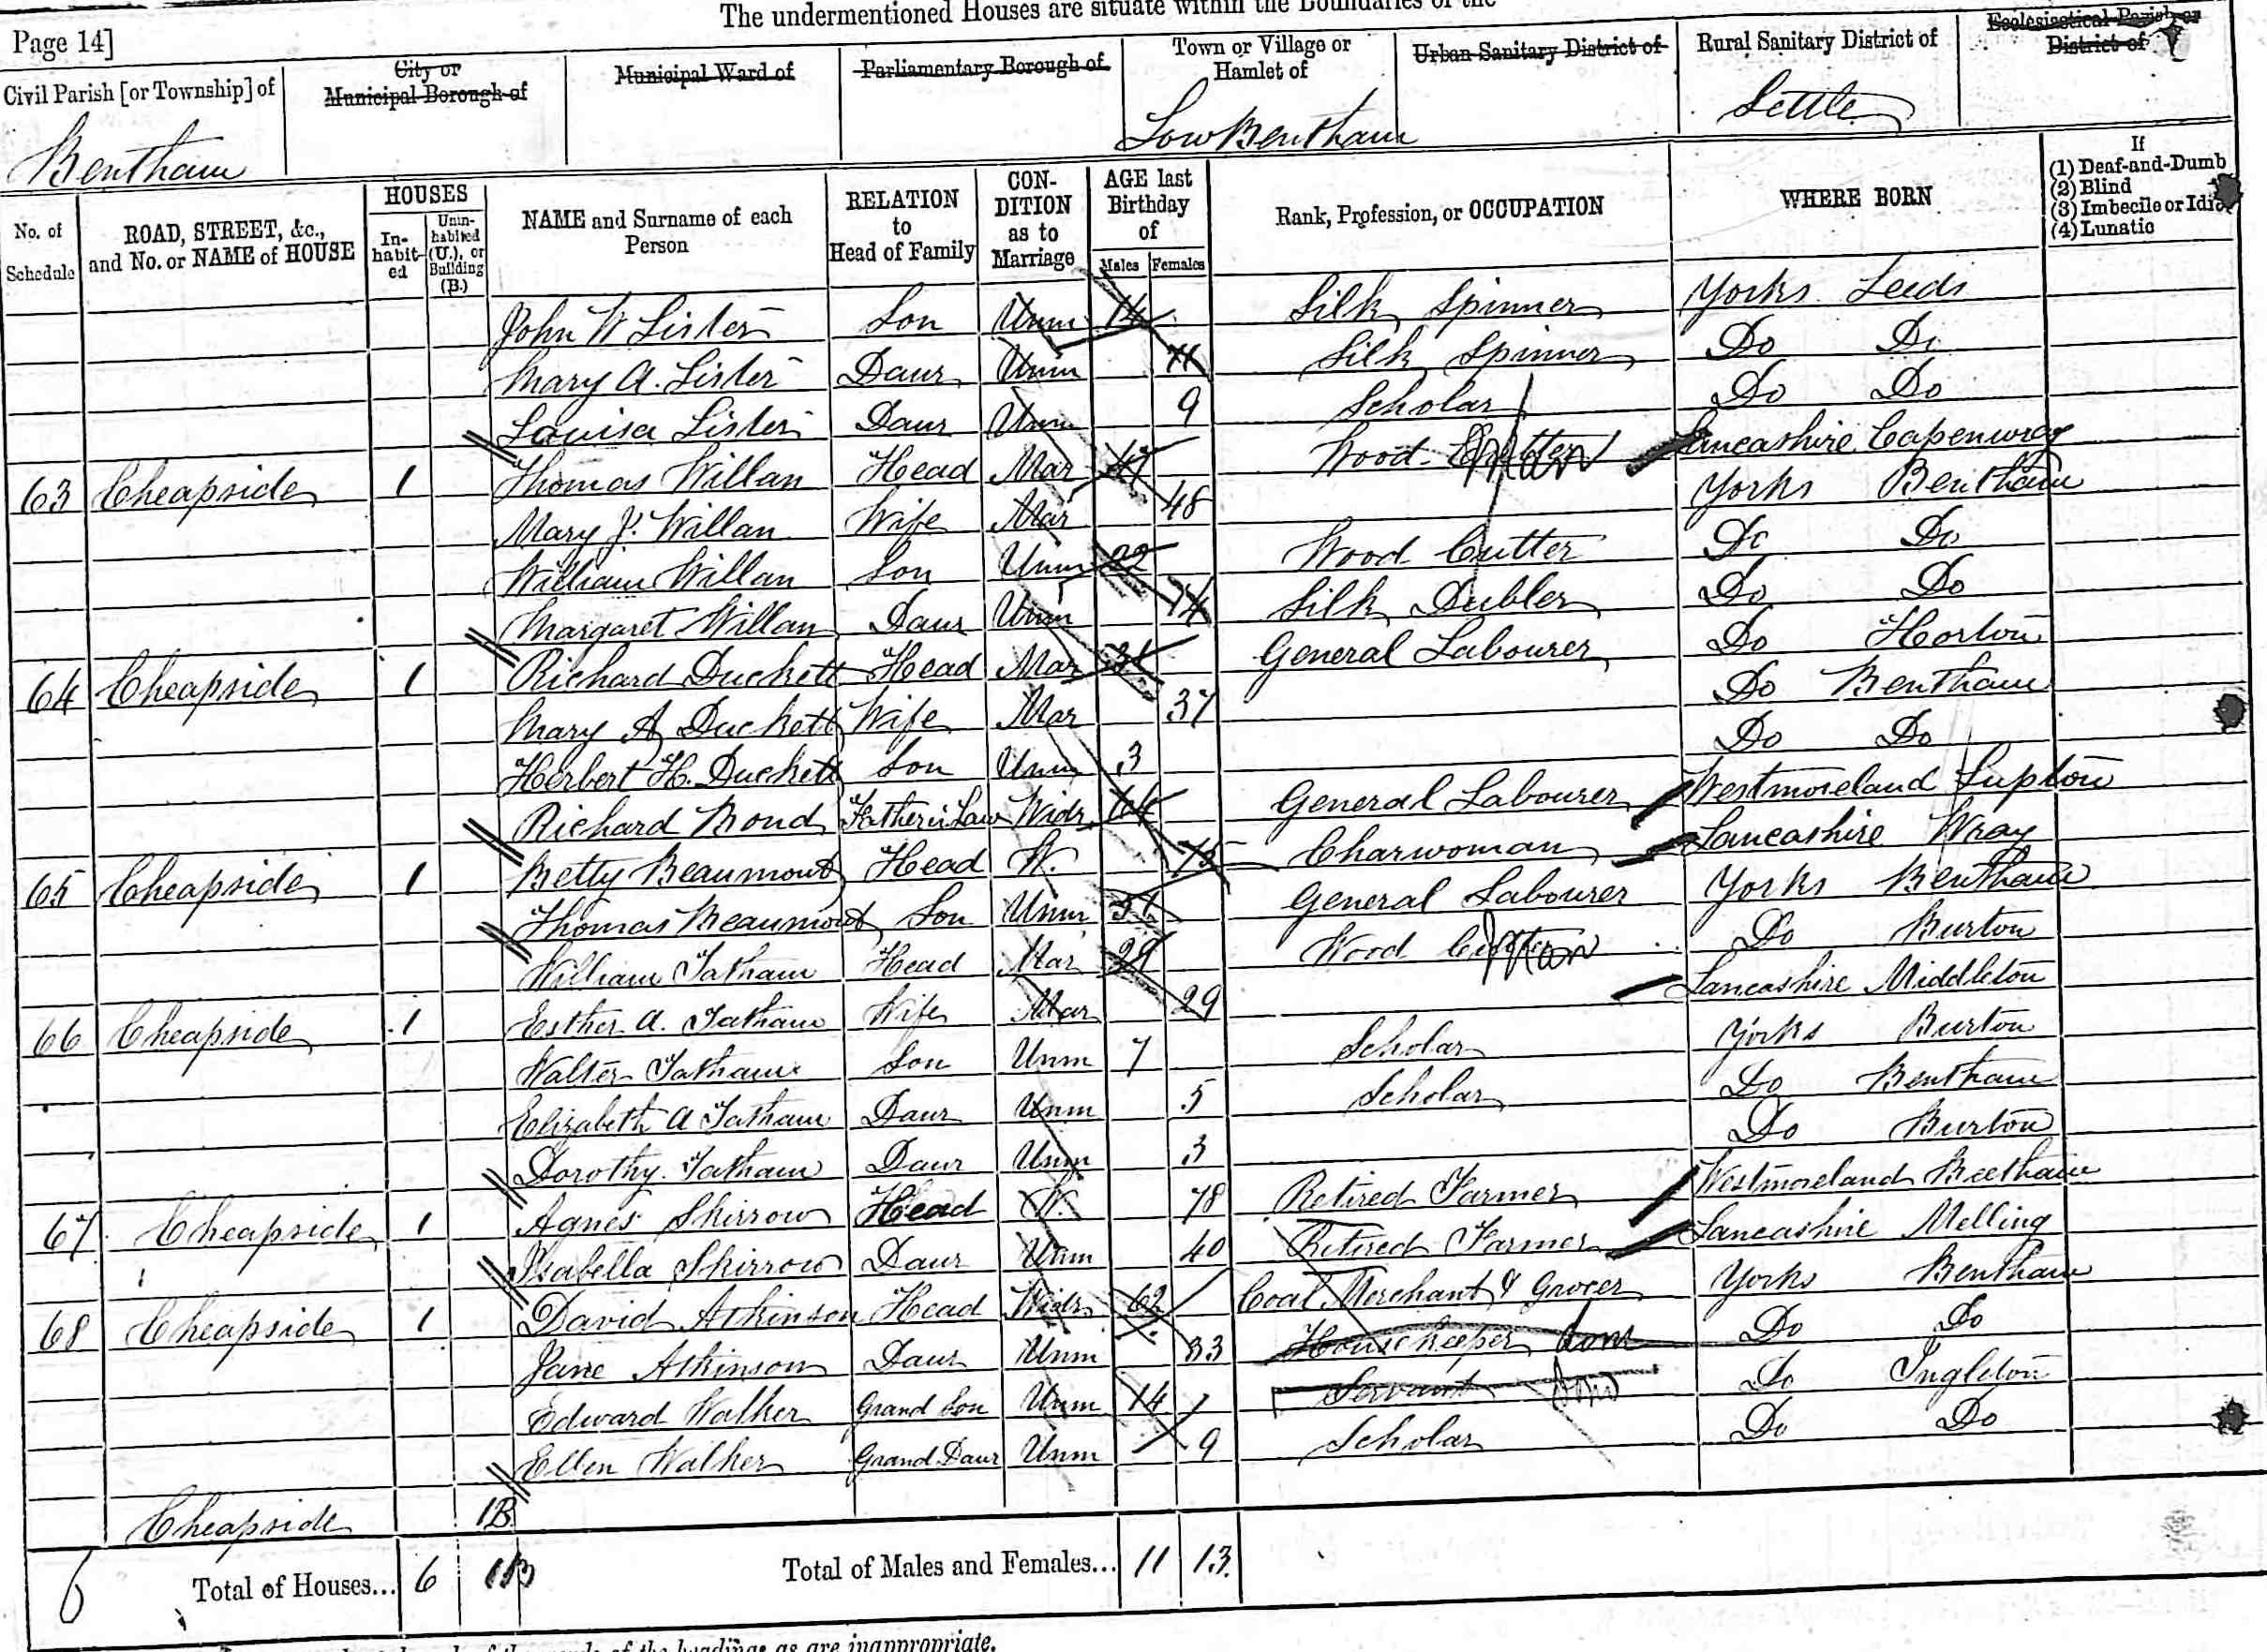 The undermentioned Houses are situate within the Boundaries of the
Page 14]
Civil Parish [or Township] of
City or Municipal Borough of
Municipal Ward of
Parliamentary Borough of
Town or Village or Hamlet of
Urban Sanitary District of
Rural Sanitary District of
Ecclesiastical Parish or District of
Bentham Low Bentham Settle
No. of Schedule
ROAD, STREET, &c., and No. or NAME of HOUSE
HOUSES
In-habit-ed
Unin-habited (U.), or Building (B.)
NAME and Surname of each Person
RELATION to Head of Family
CON-DITION as to Marriage
AGE last Birthday of
Males Females
Rank, Profession, or OCCUPATION
WHERE BORN
If
(1) Deaf-and-Dumb
(2) Blind
(3) Imbecile or Idiot
(4) Lunatic
John W Lister Son Unm 14 Silk Spinner Yorks Leeds
Mary A. Lister Daur Unm 11 Silk Spinner Do Do
Louisa Lister Daur Unm 9 Scholar Do Do
63 Cheapside 1 Thomas Willan Head Mar Wood Cutter Man Lancashire Capenwray
Mary J. Willan Wife Mar 48 Yorks Bentham
William Willan Son Unm 22 Wood Cutter Do Do
Margaret Willan Daur Unm 14 Silk Dubler Do Do
64 Cheapside 1 Richard Duckett Head Mar 31 General Labourer Do Horton
Mary A Duckett Wife Mar 37 Do Bentham
Herbert H. Duckett Son Unm 3 Do Do
Richard Bond Father in Law Widr General Labourer Westmoreland Lupton
65 Cheapside 1 Betty Beaumont Head W. 75 Charwoman Lancashire Wray
Thomas Beaumont Son Unm General Labourer Yorks Bentham
William Tatham Head Mar 29 Wood Cutter Man Do Burton
66 Cheapside 1 Esther A. Tatham Wife Mar 29 Lancashire Middleton
Walter Tatham Son Unm 7 Scholar Yorks Burton
Elizabeth A Tatham Daur Unm 5 Scholar Do Bentham
Dorothy Tatham Daur Unm 3 Do Burton
67 Cheapside 1 Agnes Skirrow Head W. 78 Retired Farmer Westmoreland Beetham
Isabella Skirrow Daur Unm 40 Retired Farmer Lancashire Melling
68 Cheapside 1 David Atkinson Head Widr 62 Coal Merchant & Grocer Yorks Bentham
Jane Atkinson Daur Unm 33 Housekeeper Dom Do Do
Edward Walker Grand Son Unm 14 Servant Dom Do Ingleton
Ellen Walker Grand Daur Unm 9 Scholar Do Do
Cheapside 1B
6 Total of Houses... 6 1B Total of Males and Females... 11 13
of the headings as are inappropriate.